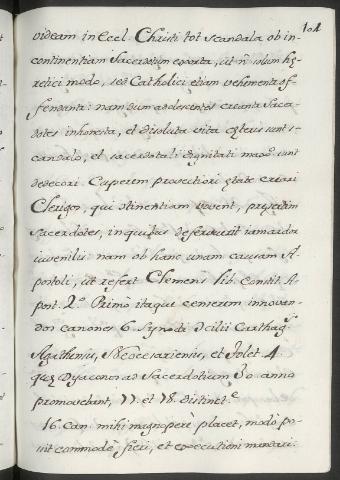 104
videam in Eccl. Christi tot scandala ob in-
continentiam Sacerdotum exorta, ut ñ solum hę-
retici modo, sed Catholici etiam vehementer of-
fendantur: nam dum adolescentes creantur Sacer-
dotes inhonesta, et dissoluta vita cęteris sunt s-
candalo, et sacerdotali dignitati maxº sunt
dedecori. Cuperem provectiori ętate creari
Clericos, qui continentiam vovent, presertim
Sacerdotes, in quibus deferbuerit iam ardor
iuvenilis: nam ob hanc unam causam A-
postoli, ut refert Clemens lib. Constit. A-
post. 2.º Primo itaque censerem innovan-
dos canones 6. Synodi Cilii Carthag.
Agathensis, Neocesariensis, et Tolet. 4
quę Dyaconos ad Sacerdotium 30 anno
promovebant, 77. et 78. distinct.e
16. Can. mihi magnoperè placet, modò pos-
sit commodè fieri, et executioni mandari: